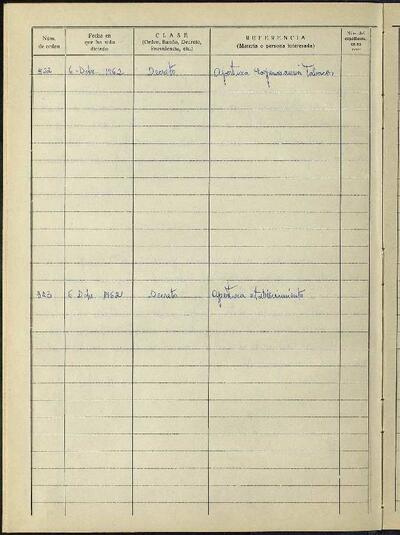 Núm. de orden
Fecha en que ha sido dictado
CLASE
(Orden, Bando, Decreto, Providencia, etc.)
REFERENCIA
(Materia o persona interesada)
Núm. del
6 - Dbre 1962 Decreto Apertura
323 6 Dbre 1962 Decreto Apertura establecimiento